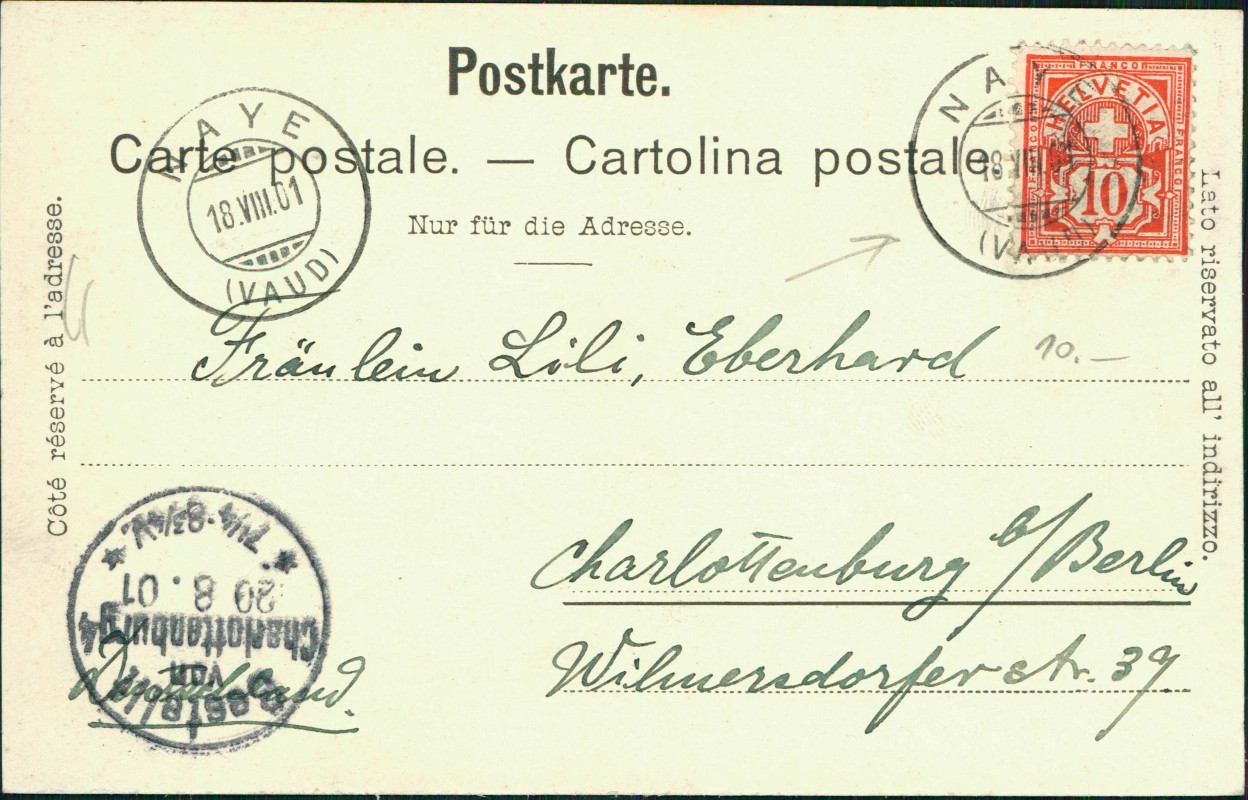 Postkarte.
Carte postale. — Cartolina postale.
Nur für die Adresse.
Côté réservé à l'adresse.
Lato riservato all' indirizzo.
NAYE
18.VIII.01
(VAUD)
NAYE
18.VIII.
(VAUD)
FRANCO
FRANCO
FRANCO
HELVETIA
10
Fräulein Lili, Eberhard
10.—
Charlottenburg b/Berlin
Wilmersdorfer str. 39
Deutschland.
Bestellt
von
Charlottenburg 4
20 8.01
* 7¼-8¾V. *